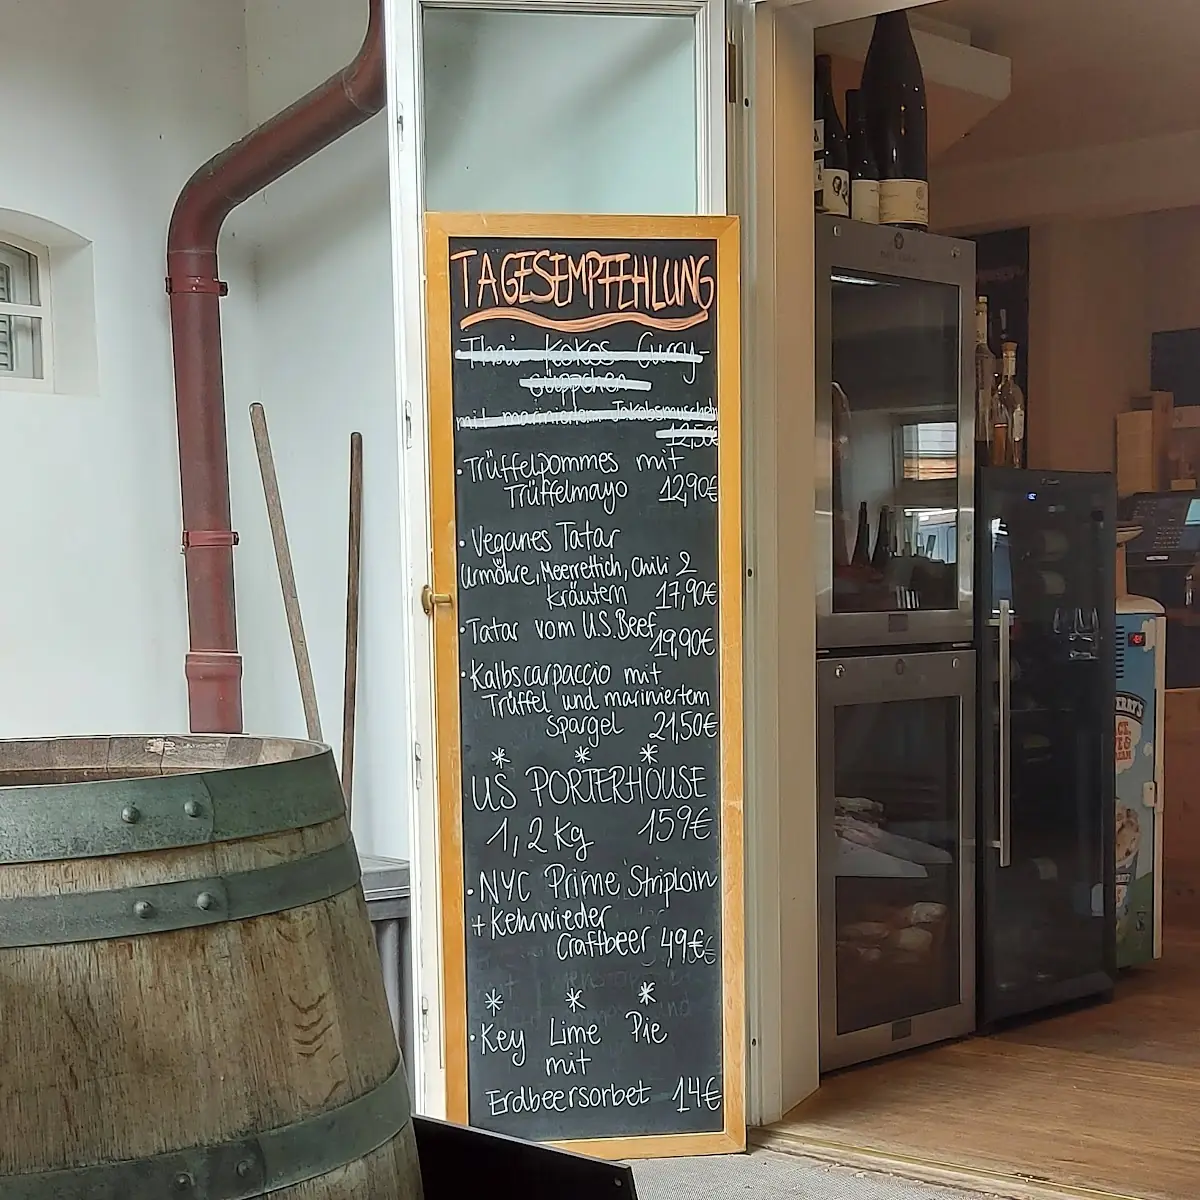 TAGESEMPFEHLUNG
Thai Kokos Curry-
süppchen
mit marinierten Jakobsmuscheln
12,50€
• Trüffelpommes mit
Trüffelmayo 12,90€
• Veganes Tatar
Urmöhre, Meerrettich, Chili &
Kräutern 17,90€
• Tatar vom U.S. Beef
19,90€
• Kalbscarpaccio mit
Trüffel und mariniertem
Spargel 21,50€
* * *
• U.S PORTERHOUSE
1,2 Kg 159€
• NYC Prime Striploin
+ Kehrwieder
Craftbeer 49€
* * *
• Key Lime Pie
mit
Erdbeersorbet 14€